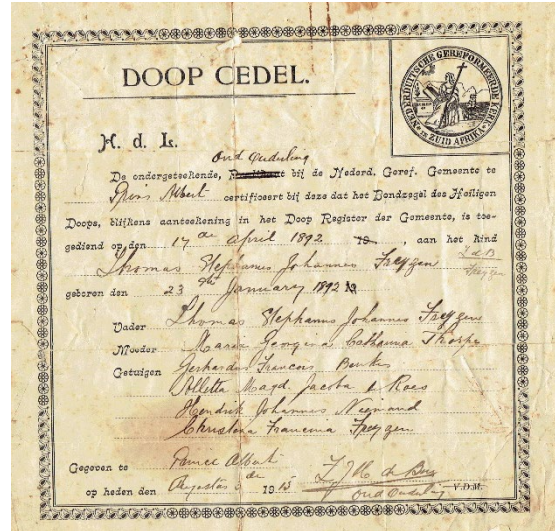 DOOP CEDEL.
NEDERDUITSCHE GEREFORMEERDE KERK
IN ZUID AFRIKA
H. d. L.
Oud Ouderling
De ondergeteekende, bij de Nederd. Geref. Gemeente te
Albert certificeert bij deze dat het Bondzegel des Heiligen
Doops, blijkens aanteekening in het Doop Register der Gemeente, is toe-
gediend op den 17 de April 1892 19 aan het kind
Thomas Stephanus Johannes Freyzen
geboren den 23 January 1892 19
Vader Thomas Stephanus Johannes Freyzen
Moeder Maria Georgina Catharina Thorpe
Getuigen Gerhardus Francois
Alletta Magd. Jacoba
Hendrik Johannes Niemand
Christina Francina Freyzen
Gegeven te Prince Albert
op heden den Augustus 5 de 1913 V.D.M.
Oud Ouderling